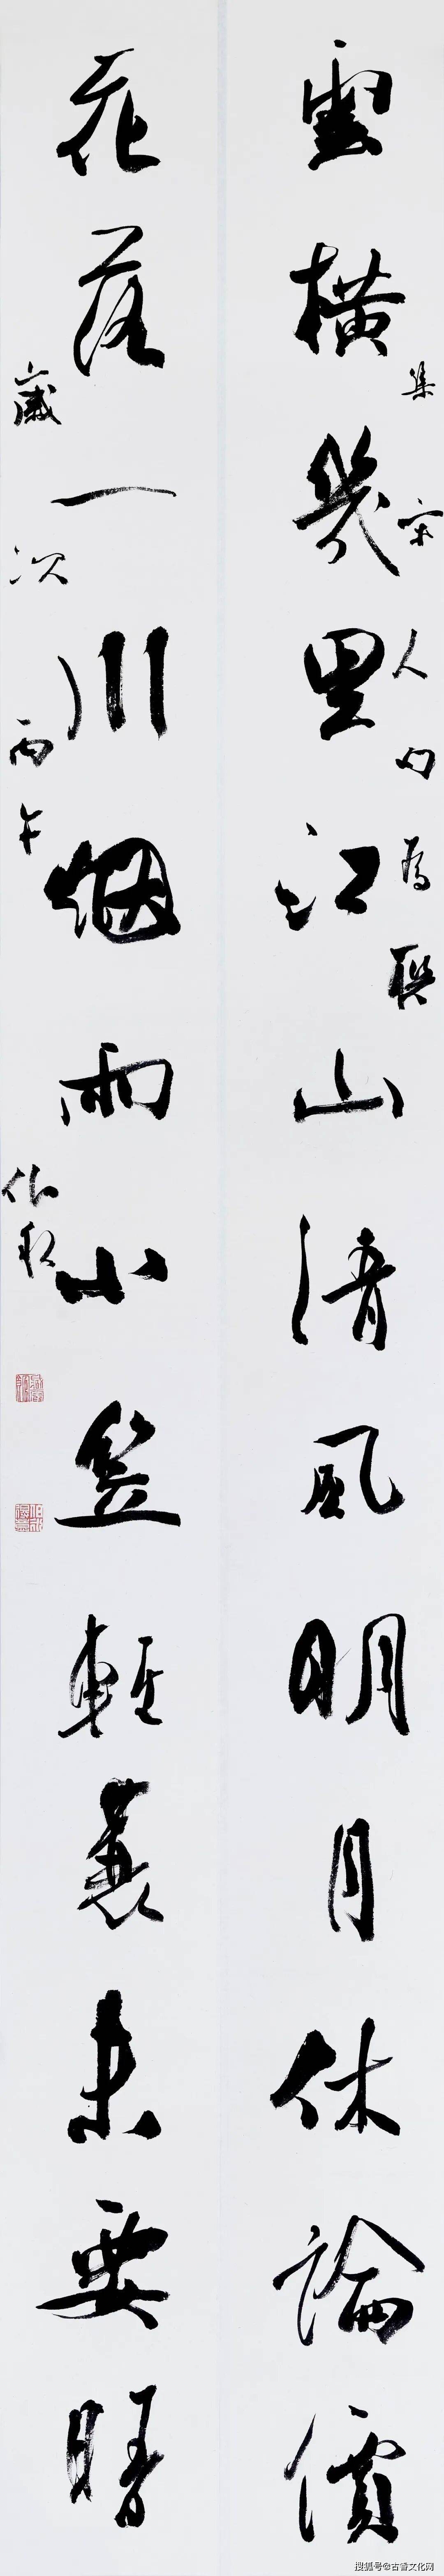 雲橫幾里江山清風明月休論價
集宋人句為聯
花落一川烟雨小笠輕蓑未要晴
歲次丙午
搜狐号@古香文化网